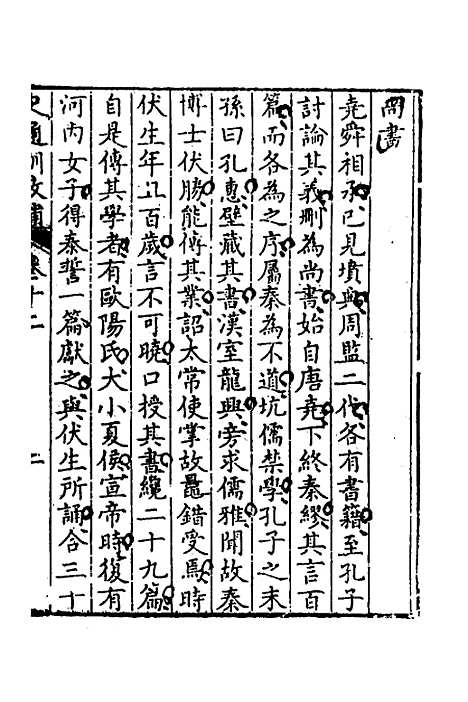 尚書
堯舜相承已見墳典周監二代各有書籍至孔子
討論其義刪為尚書始自唐堯下終秦繆其言百
篇而各為之序屬秦為不道坑儒禁學孔子之末
孫曰孔惠壁藏其書漢室龍興旁求儒雅聞故秦
博士伏勝能傳其業詔太常使掌故鼂錯受焉時
伏生年且百歲言不可曉口授其書纔二十九篇
自是傳其學者有歐陽氏大小夏侯宣帝時復有
河內女子得泰誓一篇獻之與伏生所誦合三十
史通訓故補 卷十二 二